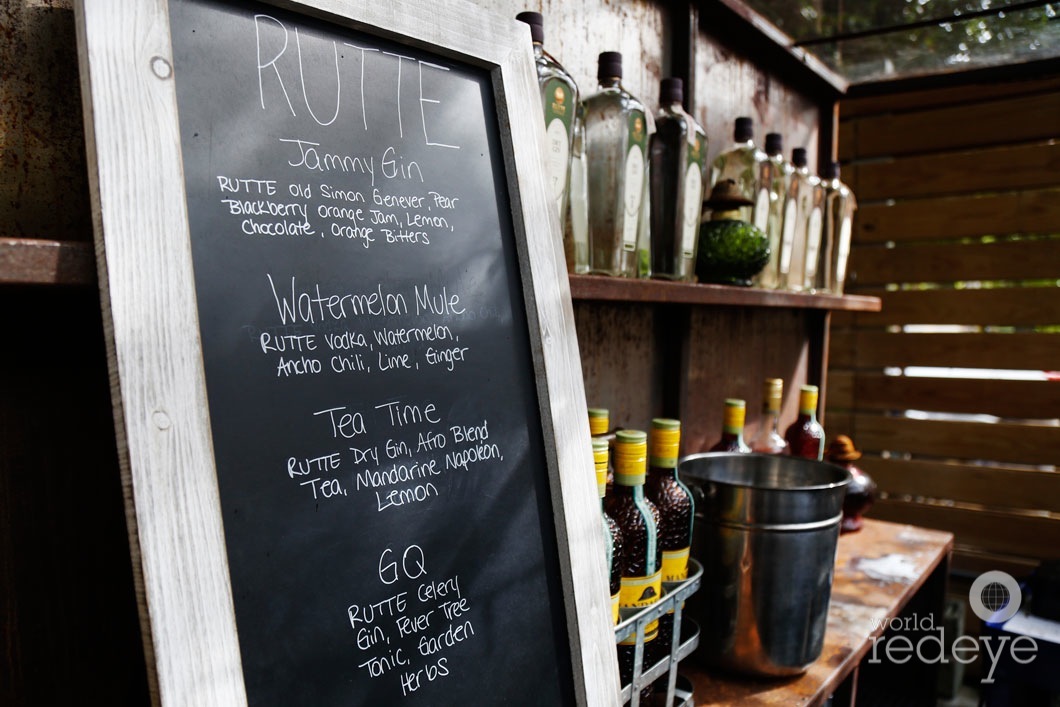 RUTTE
Jammy Gin
RUTTE Old Simon Genever, Pear
Blackberry Orange Jam, Lemon,
Chocolate, Orange Bitters
Watermelon Mule
RUTTE Vodka, Watermelon,
Ancho Chili, Lime, Ginger
Tea Time
RUTTE Dry Gin, Afro Blend
Tea, Mandarine Napoléon,
Lemon
GQ
RUTTE Celery
Gin, Fever Tree
Tonic, Garden
Herbs
world
redeye